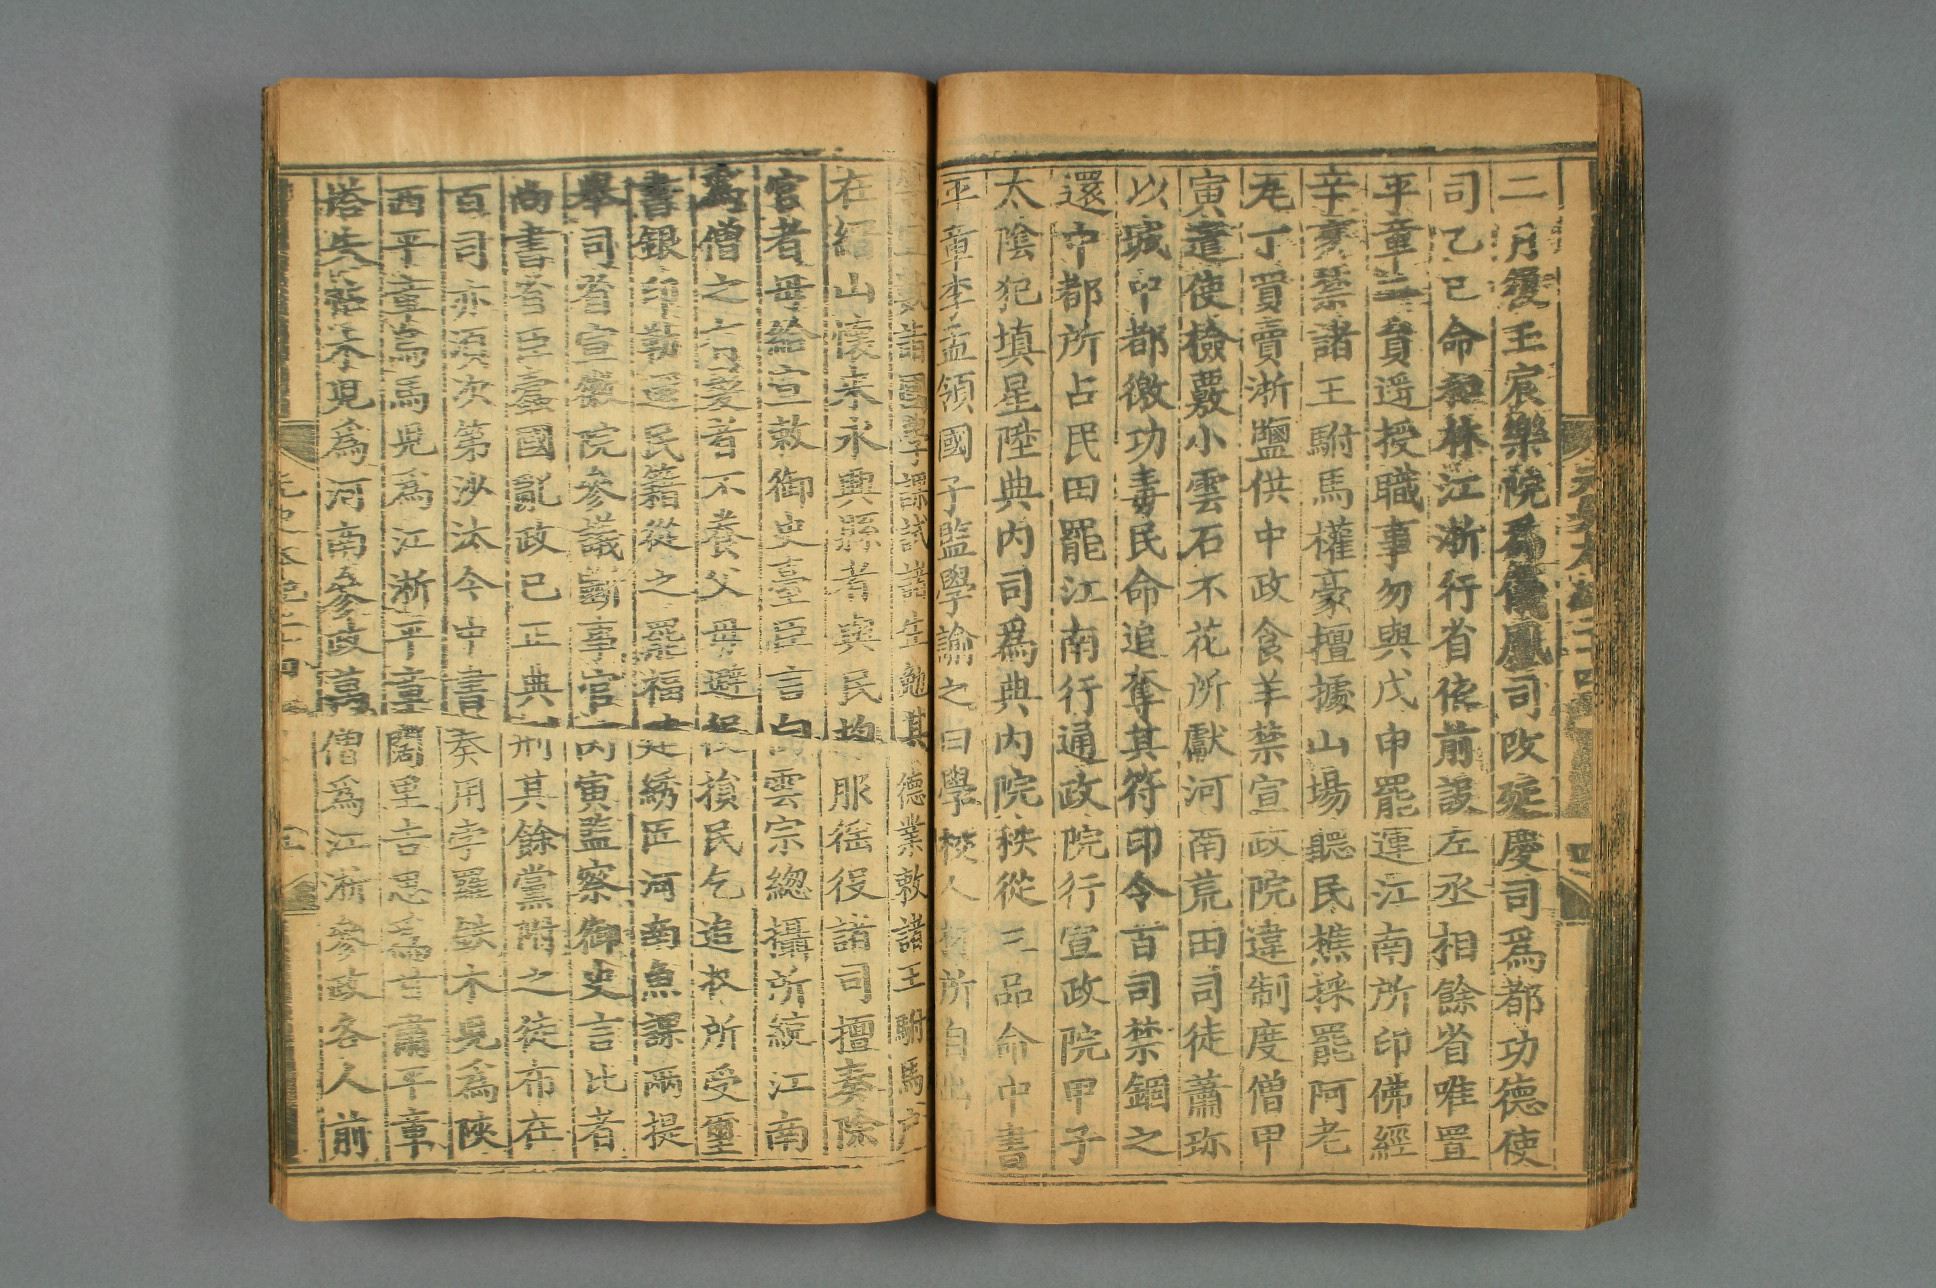 二月復玉宸樂院爲儀鳳司改延慶司爲都功德使
司乙巳命和林江浙行省依前設左丞相餘省唯置
平章二員遥授職事勿與戊申罷運江南所印佛經
辛亥禁諸王駙馬權豪擅據山場聽民樵採罷阿老
瓦丁買賣浙鹽供中政食羊禁宣政院違制度僧甲
寅遣使檢覈小雲石不花所獻河南荒田司徒蕭珍
以城中都徼功毒民命追奪其符印令百司禁錮之
還中都所占民田罷江南行通政院行宣政院甲子
太陰犯填星陞典内司爲典内院秩從三品命中書
平章李孟領國子監學諭之曰學校人材所自出
等宜數詣國學課試諸生勉其德業敕諸王駙馬戶
在縉山懷來永興縣者與民均服徭役諸司擅奏除
官者毋給宣敕御史臺臣言白雲宗總攝所統江南
爲僧之有髮者不養父母避役損民乞追收所受璽
書銀印勒還民籍從之罷福建綉匠河南魚課兩提
舉司省宣徽院參議斷事官丙寅監察御史言比者
尚書省臣蠹國亂政已正典刑其餘黨附之徒布在
百司亦須次第沙汰今中書奏用孛羅鐵木兒爲陝
西平章烏馬兒爲江浙平章闊里吉思爲甘肅平章
塔失帖木兒爲河南參政萬僧爲江浙參政各人前
元史本紀二十四
四
元史本紀二十四
五